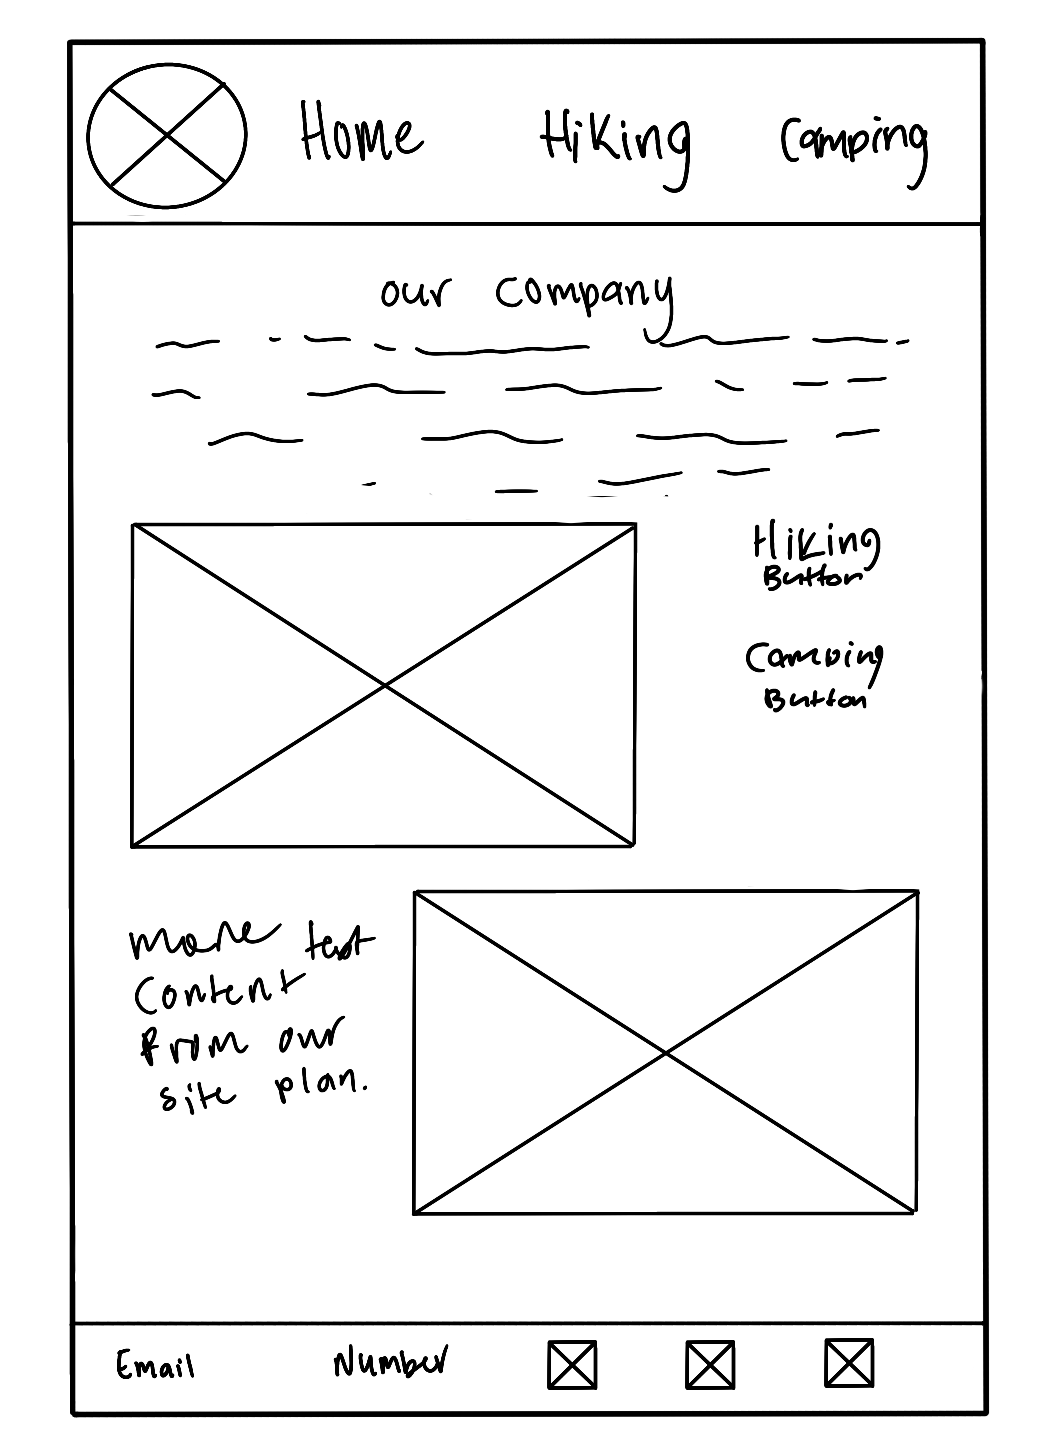 Home Hiking Camping
our company
Hiking
Button
Camping
Button
more text
Content
from our
site plan.
Email Number